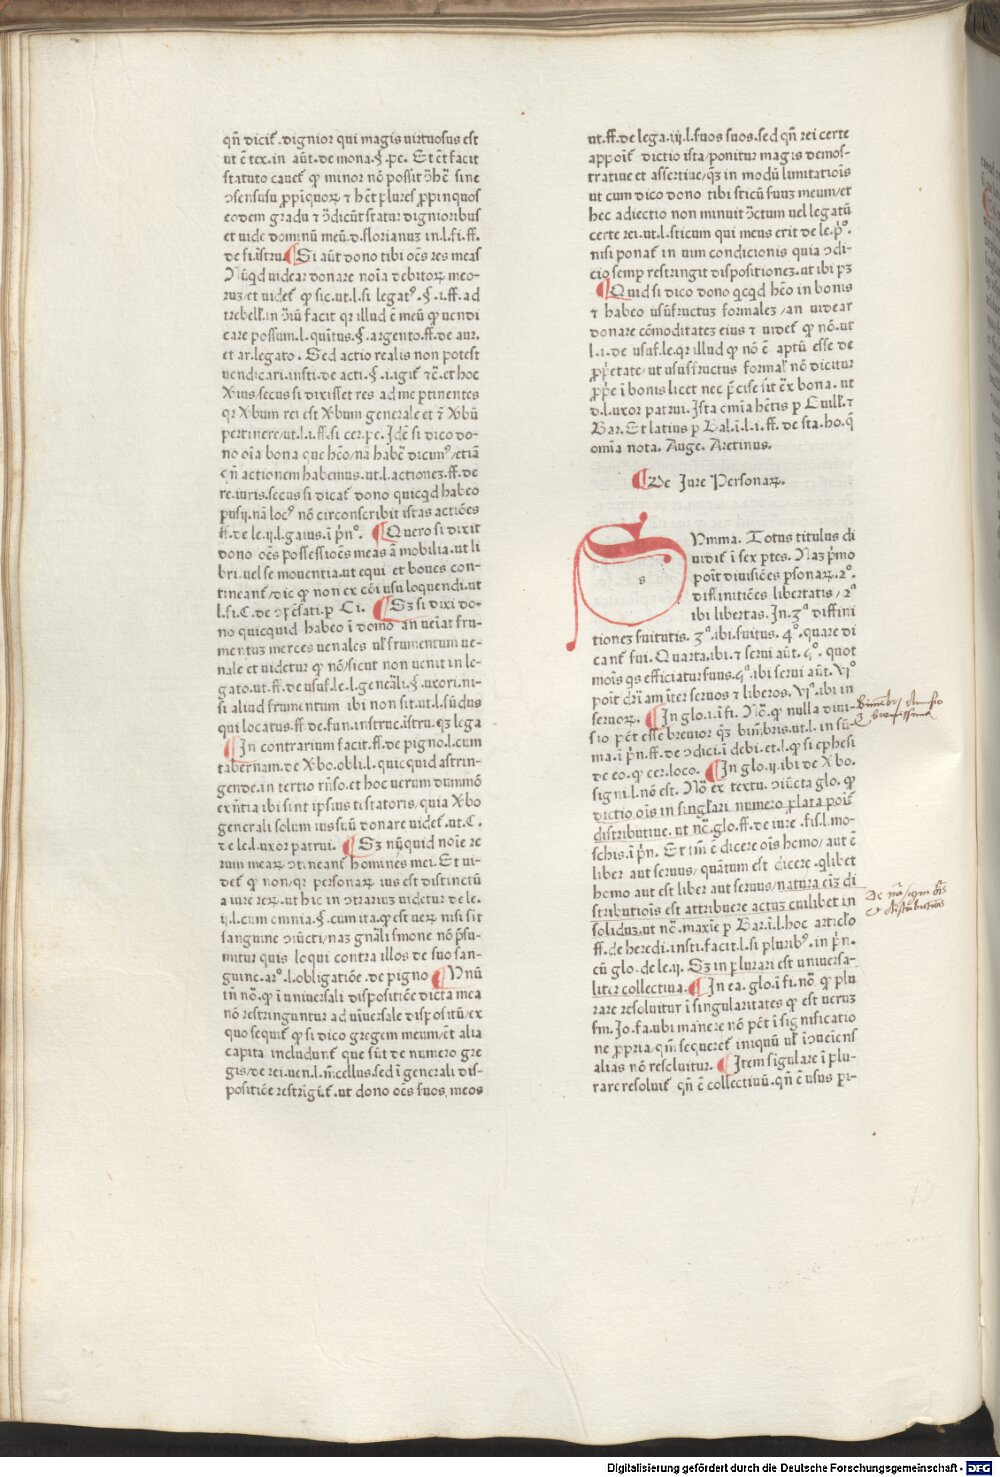 qñ dicit̃. dignior qui magis uirtuosus est
ut ẽ tex. in aut̃. de mona. §. pe. Et ẽt facit
statuto cauet̃ ꝙ minor nõ possit ɔħẽ sine
ɔsensusu ꝓpĩquoꝝ ⁊ hẽt plures ꝓpinquos
eodem gradu ⁊ ɔ̃dicũt statur dignioribus
et uide dominũ meũ. d. florianuz in. l. fi. ff.
de fi. ĩstru. ¶ Si aũt dono tibi oẽs res meas
Nũqd uidear donare noĩa debitoꝝ meo-
ruz/et uidet̃ ꝙ sic. ut. l. si legatꝰ. §. i. ff. ad
trebell. in ɔ̃iũ facit qr illud ẽ meũ ꝙ uendi
care possum. l. quĩtus. §. argento. ff. de aur.
et ar. legato. Sed actio realis non potest
uendicari. insti. de acti. §. i. igit̃ ⁊c̃. et hoc
uerius. secus si dixisset res ad me ptinentes
qr Xbum rei est Xbum generale et ẽ Xbũ
pertinere/ut. l. i. ff. si cer. pe. Idẽ si dico do-
no oĩa bona que hẽo/nã habẽ dicimꝰ/etiã
qñ actionem habemus. ut. l. actionez. ff. de
re. iuris. secus si dicat̃ dono quicqd habeo
pusij. nã locꝰ nõ circonscribit istas actiões
ff. de le. ij. l. gaius. ĩ pñᵒ. ¶ Quero si dixit
dono oẽs possessioẽs meas ã mobilia. ut li
bri. uel se mouentia. ut equi et boues con-
tineant̃/dic ꝙ non ex cõi usu loquendi. ut
l. fi. C. de ɔp̃esati. p Ci. ¶ Sz si dixi do-
no quicquid habeo ĩ domo an ueĩat fru-
mentuz merces uenales ul' frumentum ue-
nale et uidetur ꝙ nõ/sicut non uenit in le-
gato. ut. ff. de usuf. le. l. geneãli. §. uxori. ni-
si aliud frumentum ibi non sit. ut. l. fũdus
qui locatus. ff. de fun. instruc. ĩstru. qz lega
¶ In contrarium facit. ff. de pigno. l. cum
tabernam. de Xbo. obli. l. quicquid astrin-
gende. in tertio rñso. et hoc uerum dummõ
exñtia ibi sint ipsius testatoris, quia Xbo
generali solum ius suũ donare uidet̃. ut. C.
de le. l. uxor patrui. ¶ Sz nũquid noĩe re
rum mearꝝ ɔtineant̃ homines mei. Et ui-
det̃ ꝙ non/qr personarꝝ ius est distinctũ
a iure rerꝝ. ut hic in ɔtrarium uidetur de le.
ij. l. cum omnia. §. cum ita. ꝙ est uerꝝ nisi sit
sanguine ɔiũcti/naz gnãli smone nõ p̃su-
mitur quis loqui contra illos de suo san-
guine. arᵒ. l. obligatiõe. de pigno ¶ Vnũ
iñ nõ. ꝙ ĩ uniuersali dispositiõe dicta mea
nõ restringuntur ad uĩuersale dispositũ/ex
quo sequit̃ ꝙ si dico gregem meum/et alia
capita includunt̃ que sũt de numero gre
gis/de rei. uen. l. m̃cellus. sed ĩ generali dis-
positiõe restrigũt̃. ut dono oẽs suos, meos
ut. ff. de lega. iij. l. suos suos. sed qñ rei certe
appoĩt̃ dictio ista/ponitur magis demos-
tratiue et assertiue/qz in modũ limitatiõis
ut cum dico dono tibi sticũ suuz meum/et
hec adiectio non minuit ɔ̃ctum uel legatũ
certe rei. ut. l. sticum qui meus erit de le. p̊.
nisi ponat̃ in uim condicionis quia ɔdi-
cio semp restringit dispositionez. ut ibi pz
¶ Quid si dico dono qcqd hẽo in bonis
⁊ habeo usũfructuz formalez/an uidear
donare cõmoditatez eius ⁊ uidet̃ ꝙ nõ. ut
l. i. de usuf. le. qr illud ꝙ nõ ẽ aptũ esse de
ꝓp̃etate/ut ususfructus formal' nõ dicitur
ꝓpẽ ĩ bonis licet nec p̃cise sit ẽx bona. ut
d. l. uxor patrui. Ista oĩnia hẽtis p Guill. ⁊
Bar. Et latius p Bal. ĩ. l. i. ff. de sta. ho. q̃
omia nota. Auge. Aretinus.
¶ De Jure Personaꝝ.
SVmma. Totus titulus di
uidit̃ ĩ sex ptes. Naz p̃mo
poĩt diuisiões psonarꝝ. 2ᵒ.
diffinitiões libertatis/ 2ᵃ
ibi libertas. In. 3ᵃ diffini
tionez suitutis. 3ᵃ. ibi. suitus. 4ᵒ. quare di
cant̃ sui. Quarta. ibi. ⁊ serui aũt. 5ᵒ. quot
moĩs qs efficiatur suus. 5ᵃ. ibi serui aũt. Vjᵒ
poĩt dr̃iam ĩter seruos ⁊ liberos. Vjᵃ. ibi in
seruorꝝ. ¶ In glo. i. ĩ fi. Nõ. ꝙ nulla diui-
sio põt esse breuior qz bim̃bris. ut. l. in sũ-
ma. ĩ pñ. ff. de ɔdici. ĩ debi. et. l. ꝙ si ephesi
de eo. ꝙ cer. loco. ¶ In glo. ij. ibi de X bo.
signi. l. nõ est. Nõ ex textu. ɔiũcta glo. ꝙ
dictio oĩs in singl'ari numero plata poĩt̃
distributiue. ut nõ. glo. ff. de iure. fis. l. mo-
schis. ĩ pñ. Et im̃ ẽ dicere oĩs homo/ aut ẽ
liber aut seruus/ quãtum est dicere. qlibet
homo aut est liber aut seruus/natura eĩz di
stributiõis est attribuere actuz cuilibet in
soliduz. ut nõ. maxĩe p Bar. ĩ. l. hoc articlo
ff. de heredi. insti. facit. l. si pluribꝰ. in pñ.
cũ glo. de le. ij. Sz in plurari est uniuersa-
liter collectiua. ¶ In ea. glo. ĩ fi. nõ. ꝙ plu
rare resoluitur ĩ singularitates ꝙ est ueruz
sm. Jo. fa. ubi manere nõ põt ĩ significatio
ne ꝓpria/qm̃ sequeret̃ iniquũ ul' ĩɔueiens
alias nõ resoluitur. ¶ Item sigulare ĩ plu-
rare resoluit̃ qñ ẽ collectiuũ. qñ ẽ usus pi-
s